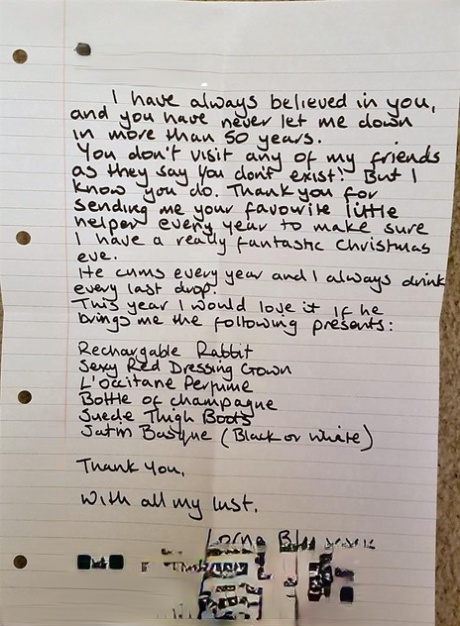 I have always believed in you,
and you have never let me down
in more than 50 years.
You don't visit any of my friends
as they say you don't exist! But I
know you do. Thank you for
sending me your favourite little
helper every year to make sure
I have a really fantastic Christmas
eve.
He cums every year and I always drink
every last drop.
This year I would love it if he
brings me the following presents:
Rechargable Rabbit
Sexy Red Dressing Gown
L'Occitane Perfume
Bottle of champagne
Suede Thigh Boots
Satin Basque (Black or White)
Thank You,
With all my lust.
Lorna